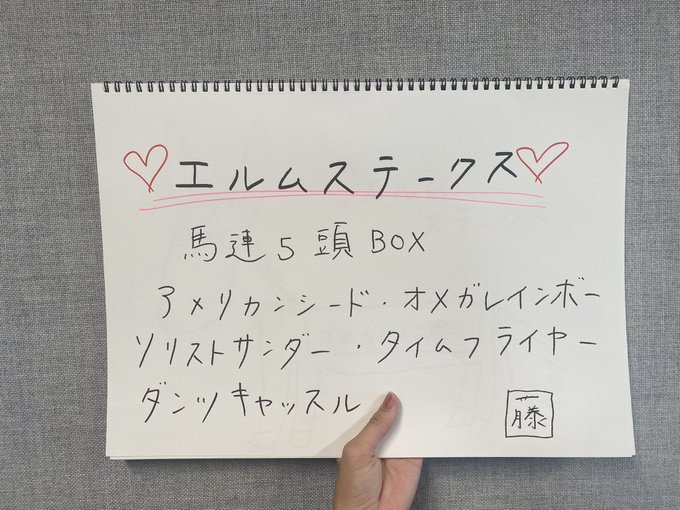 エルムステークス
馬連5頭BOX
アメリカンシード・オメガレインボー
ソリストサンダー・タイムフライヤー
ダンツキャッスル
藤